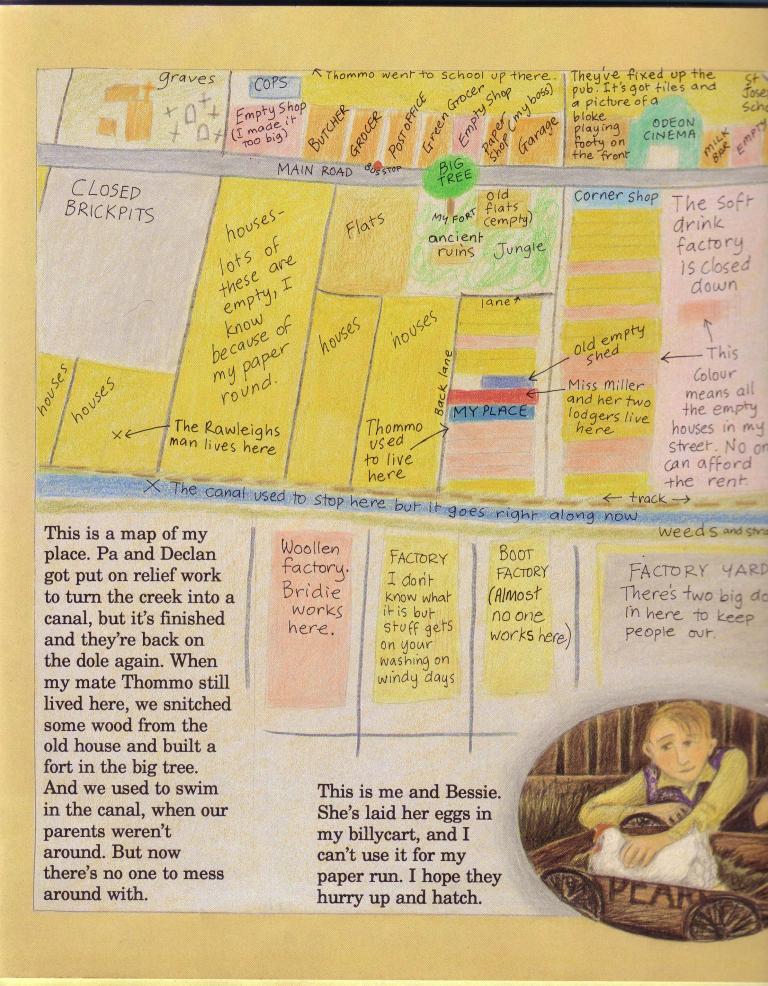 graves
COPS
Empty Shop
(I made it
too big)
Thommo went to school up there.
BUTCHER
GROCER
POST OFFICE
Green Grocer
Empty Shop
Paper
Shop (my boss)
Garage
They've fixed up the
pub. It's got tiles and
a picture of a
bloke
playing
footy on
the front
ODEON
CINEMA
MILK
BAR
EMPTY
St
Jose
Scho
MAIN ROAD
BUS STOP
BIG
TREE
CLOSED
BRICKPITS
houses-
lots of
these are
empty, I
know
because of
my paper
round.
Flats
MY FORT
ancient
ruins
Old
flats
(empty)
Jungle
Corner Shop
The Soft
drink
factory
is closed
down
lane
houses
houses
Back lane
Old empty
shed
Miss Miller
and her two
lodgers live
here
MY PLACE
This
Colour
means all
the empty
houses in my
street. No on
can afford
the rent.
houses
houses
The Rawleighs
man lives here
Thommo
used
to live
here
X The canal used to stop here but it goes right along now
← track →
weeds and
This is a map of my
place. Pa and Declan
got put on relief work
to turn the creek into a
canal, but it's finished
and they're back on
the dole again. When
my mate Thommo still
lived here, we snitched
some wood from the
old house and built a
fort in the big tree.
And we used to swim
in the canal, when our
parents weren't
around. But now
there's no one to mess
around with.
Woollen
factory.
Bridie
works
here.
FACTORY
I don't
know what
it is but
stuff gets
on your
washing on
windy days
BOOT
FACTORY
(Almost
no one
works here)
FACTORY YARD
There's two big do
in here to keep
people out.
This is me and Bessie.
She's laid her eggs in
my billycart, and I
can't use it for my
paper run. I hope they
hurry up and hatch.
PEAR